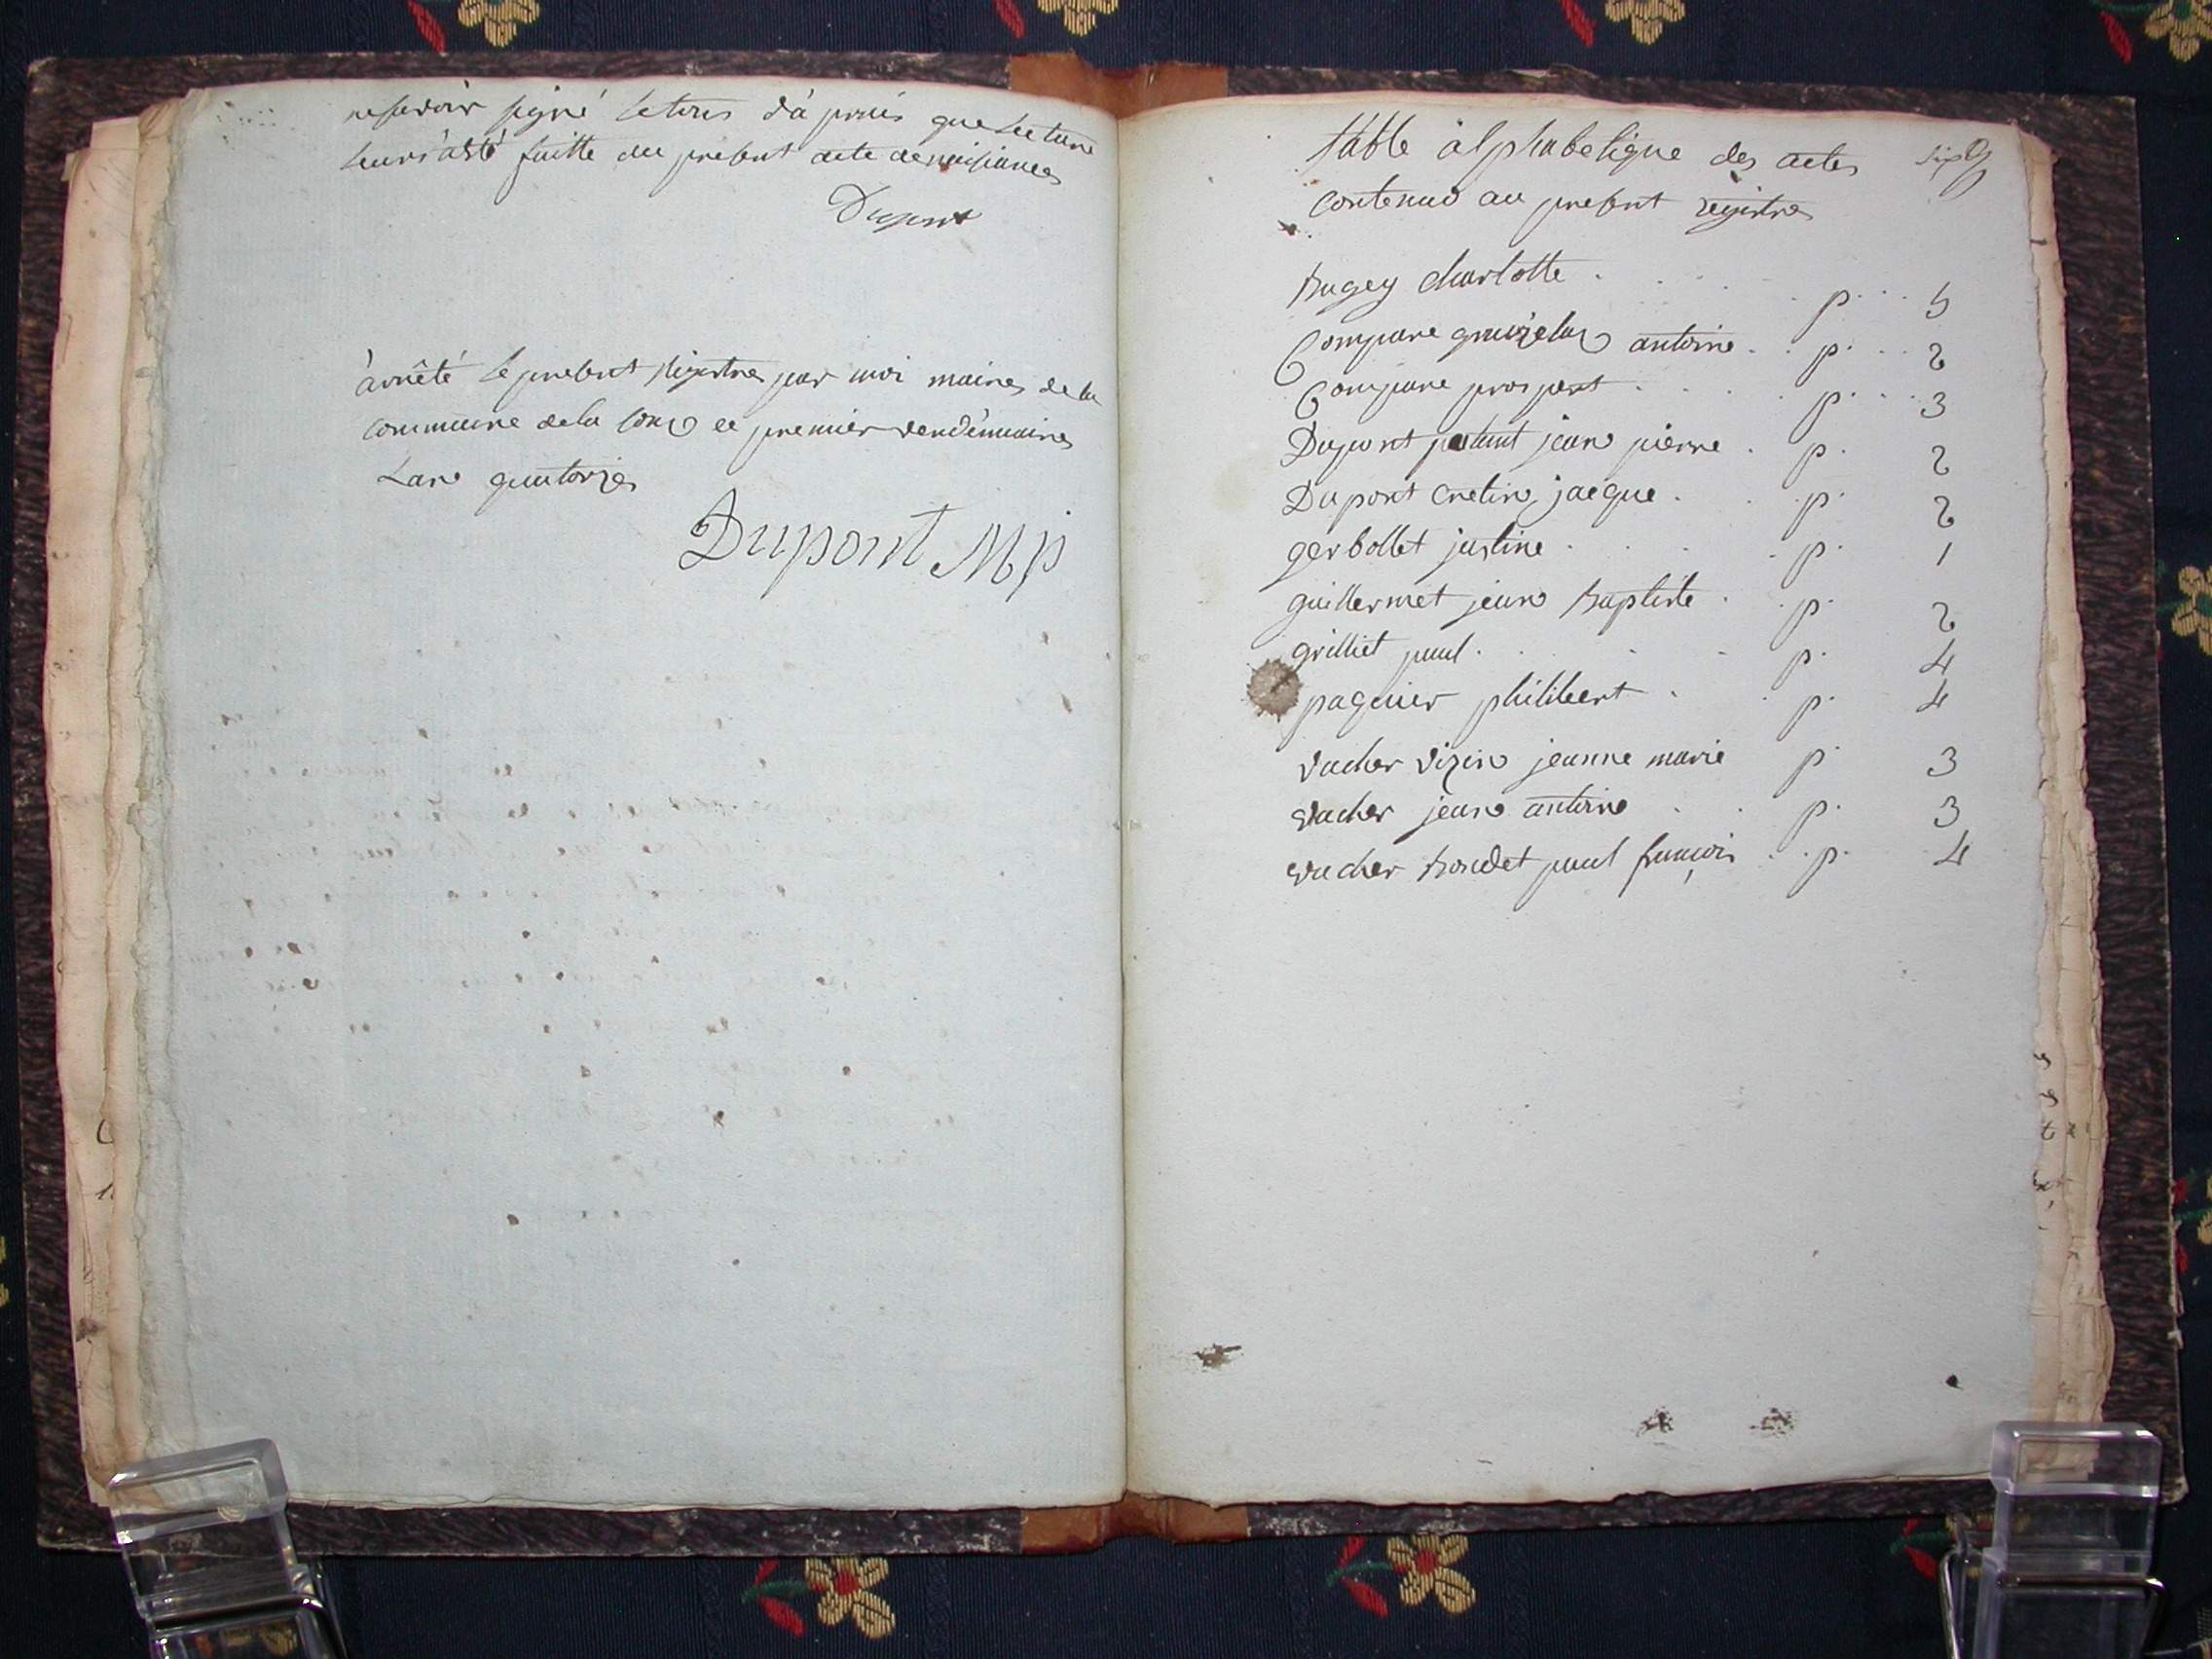 signé le tous d'a prais que lecture
leurs'aété faitte du present acte de naissances
Dupont
àrrêté le present Registres par moi maires de la
commune de la ce premier vendémiaires
Lan quatorzes
Dupont Mp
table àlphabetique des actes
contenus au present registres
six
bugey charlotte . p. 5
Compare antoine . p. 2
Compare prospert . p. 3
Dupont jean pierre . p. 2
Dupont cretin jacque . p. 2
gerbollet justine . p. 1
guillermet jean baptiste . p. 2
grilliet paul . p. 4
paquier philibert . p. 4
vacher vizin jeanne marie p 3
vacher jean antoine . p. 3
vacher bondet paul françois . p. 4